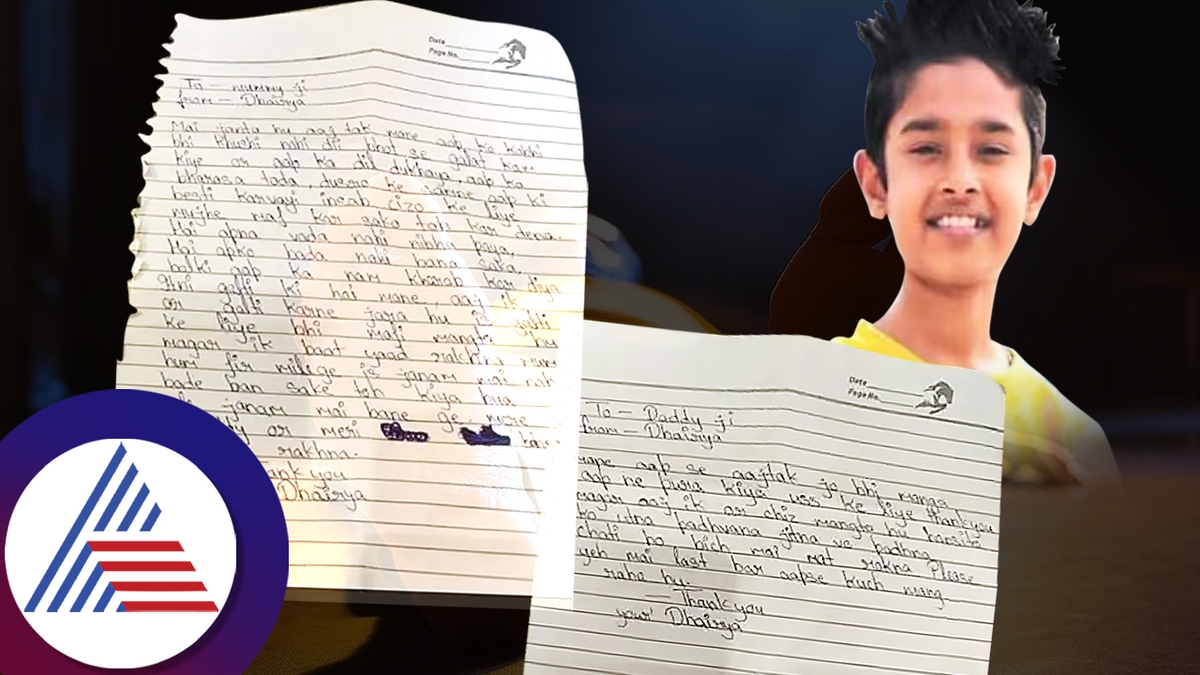 Date
Page No.
To - mummy ji
from - Dhairya
Mai janta hu aaj tak mane aap ko kabhi
bhi khushi nahi dii bhot se galat kam
kiye or aap ka dil dukhaya, aap ka
bharasa toda, dusro ke samne aap ki
besti karvayi insab cizo ke liye
mujhe maf kar sako toh kar dena.
Mai apna vada nahi nibha paya,
Mai apko bada nahi bana saka,
balki aap ka nam kharab kar diya
itni galti ki hai mane, aaj ik
or galti karne jara hu is galti
ke liye bhi mafi mangta hu
magar ik baat yaad rakhna mum
hum fir milige is janam mai nah
bade ban sake toh kiya hua
janam mai bane ge mere
or meri
rakhna.
Thank you
Dhairya
Date
Page No.
To - Daddy ji
from - Dhairya
mane aap se aajtak jo bhi manga
aap ne pura kiya uss ke liye thankyou
magar aaj ik or chiz mangta hu
ko utna padhvana jitna ve padhna
chati ho bich mai mat rakna Please
yeh mai last bar aapse kuch mang
raha hu.
- Thank you
your Dhairya